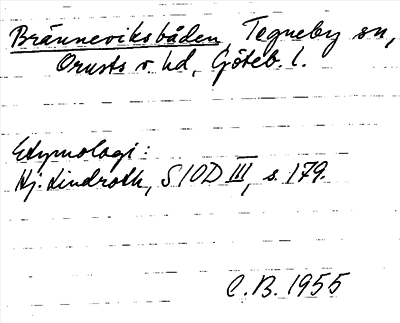 Bränneviksbåden Tegneby sn,
Orusts v hd, Göteb. l.
Etymologi:
Hj. Lindroth, SIOD III, s. 179.
C.B. 1955